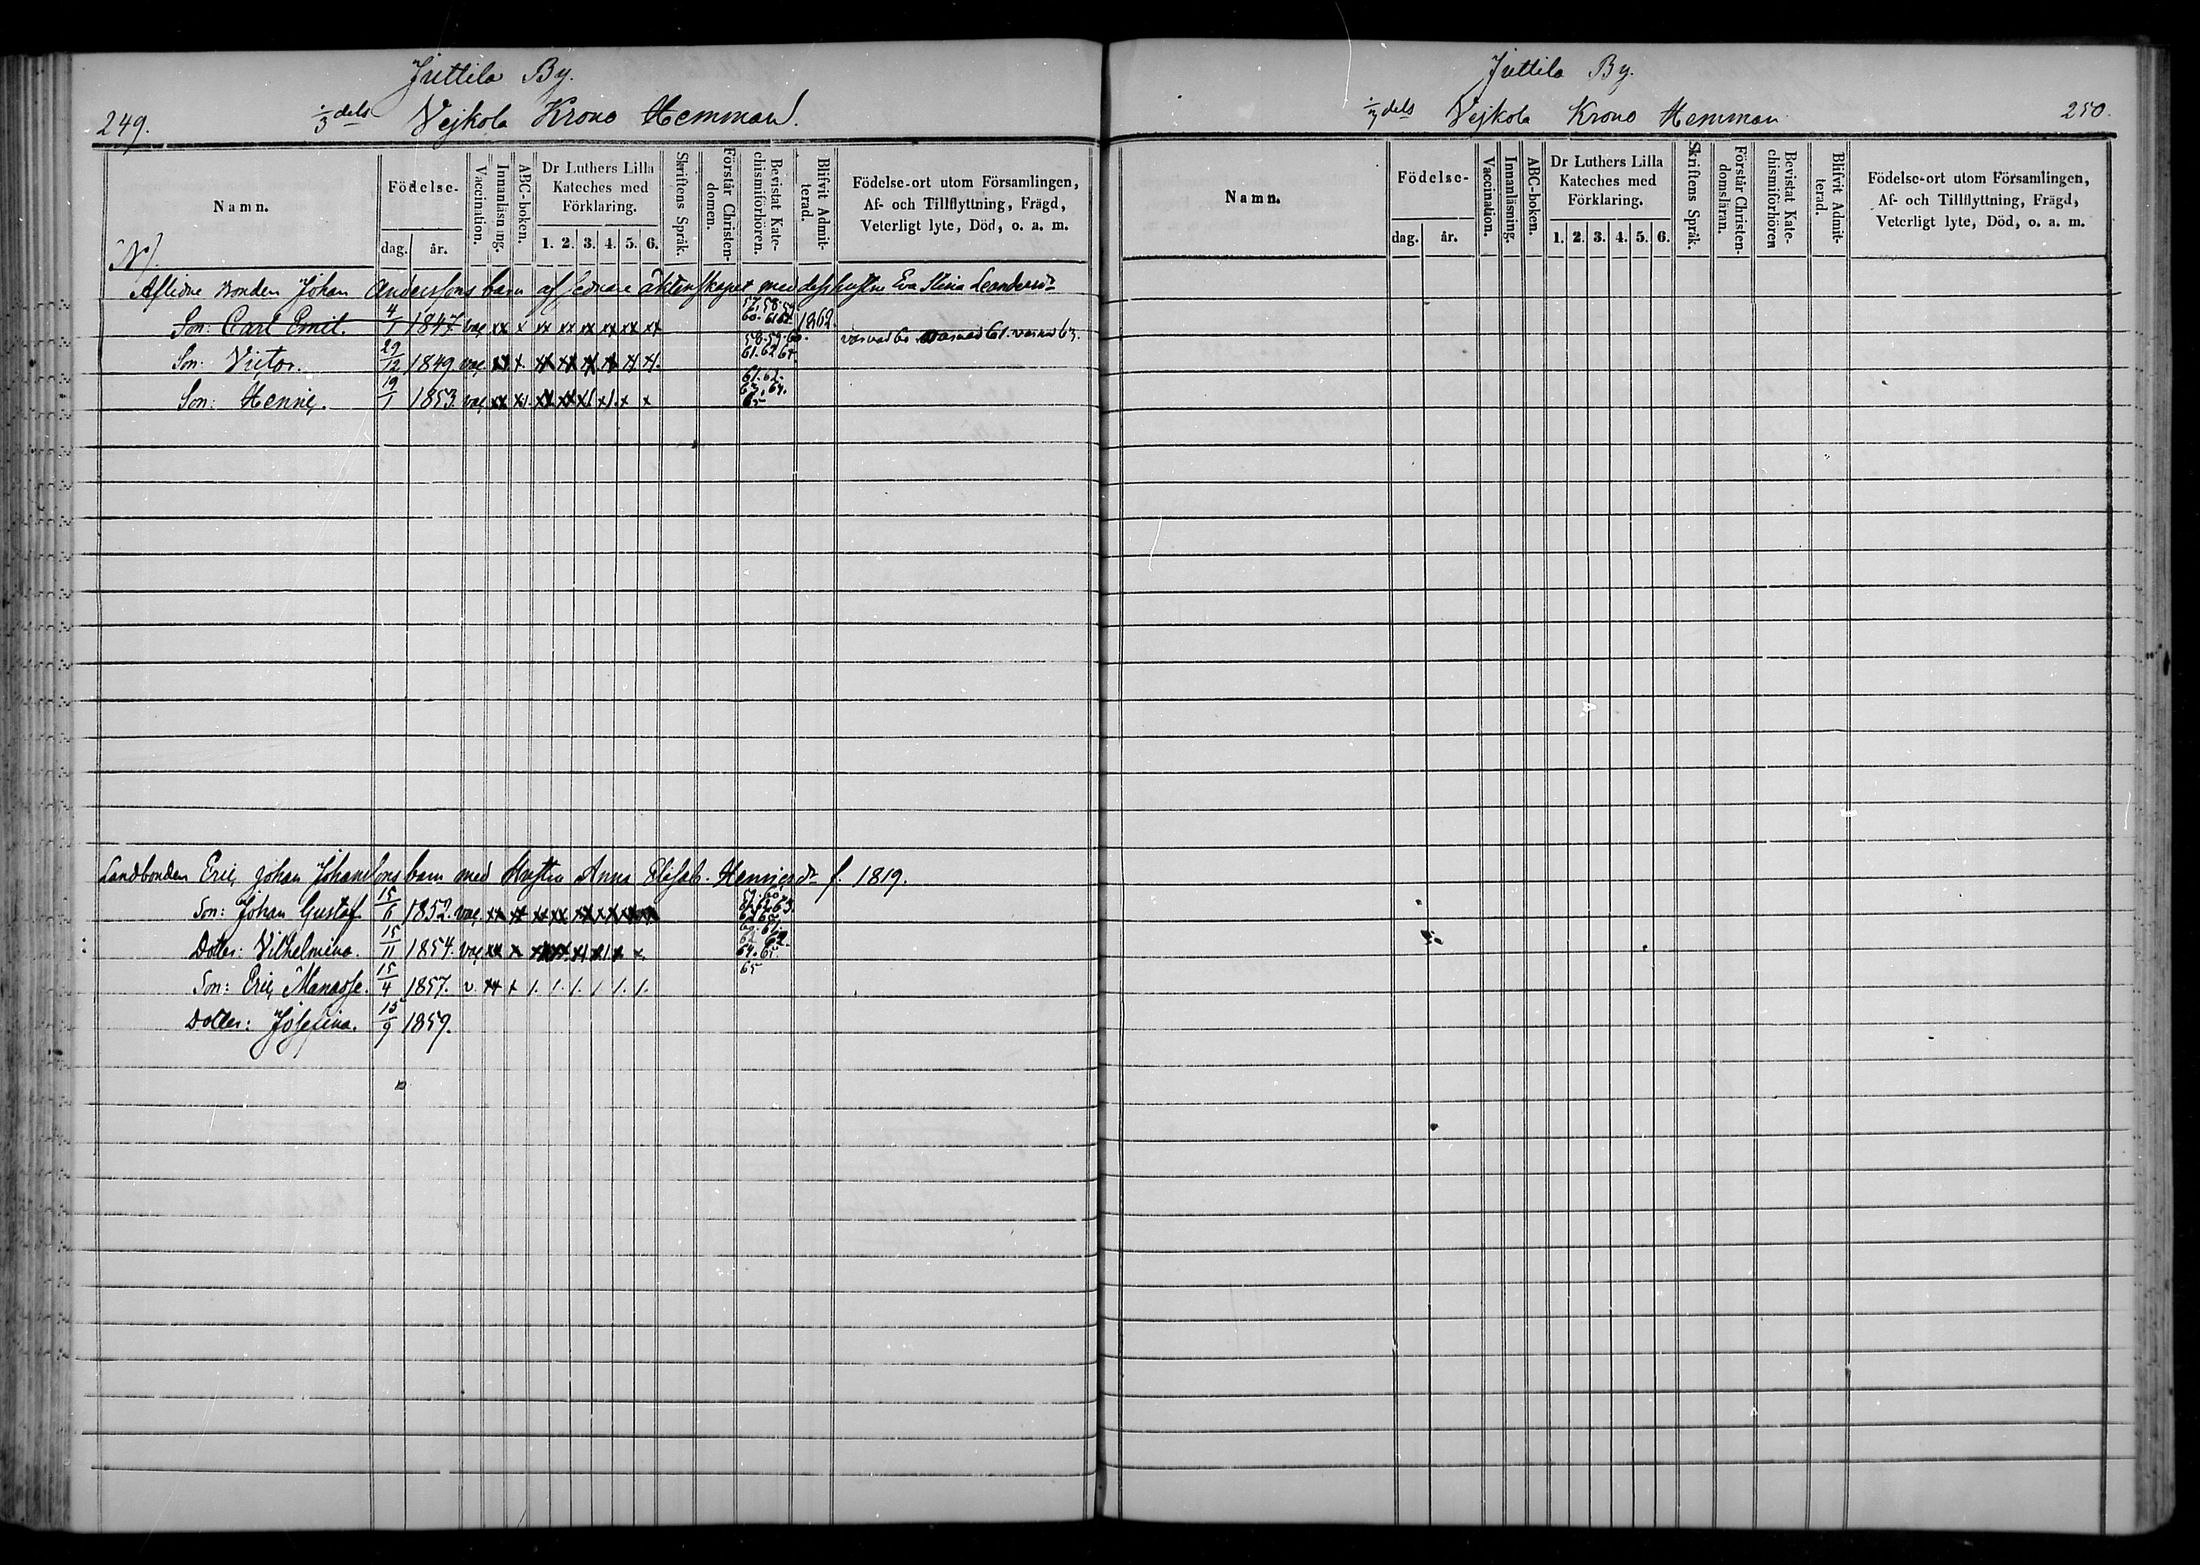 Juttila By.
249. 1/3 dels Vejkola Krono Hemman.
Namn. Födelse- dag. år. Vaccination. Innanläsning. ABC-boken. Dr Luthers Lilla Kateches med Förklaring. 1. 2. 3. 4. 5. 6. Skriftens Språk. Förstår Christendomen. Bevistat Katechismiförhören. Blifvit Admitterad. Födelse-ort utom Församlingen, Af- och Tillflyttning, Frägd, Veterligt lyte, Död, o. a. m.
Aflidne Bonden Johan Andersons barn af senare äktenskapet med dess hustru Eva Stina Leanders dr
Son: Carl Emil. 4/1 1847. vac. xx x xx xx xx xx xx xx 57. 58. 59. 60. 61. 62. 1862.
Son: Victor. 29/12 1849. vac. 58. 59. 60. 61. 62. 64. varnad 60. varnad 61. varnad 63.
Son: Henric. 19/1 1853. vac. 61. 62. 63. 64. 65
Landbonden Eric Johan Johansons barn med Hustru Anna Elisab. Henricsdr f. 1819.
Son: Johan Gustaf. 15/6 1852. vac.
Dotter: Vilhelmina. 15/11 1854. vac. 64. 65.
Son: Eric Manasse. 15/4 1857. v. xx x 1. 1. 1. 1. 1. 1. 65
Dotter: Josefina. 15/9 1859.
Juttila By.
1/3 dels Vejkola Krono Hemman 250.
Namn. Födelse- dag. år. Vaccination. Innanläsning. ABC-boken. Dr Luthers Lilla Kateches med Förklaring. 1. 2. 3. 4. 5. 6. Skriftens Språk. Förstår Christendomsläran. Bevistat Katechismiförhören Blifvit Admitterad. Födelse-ort utom Församlingen, Af- och Tillflyttning, Frägd, Veterligt lyte, Död, o. a. m.